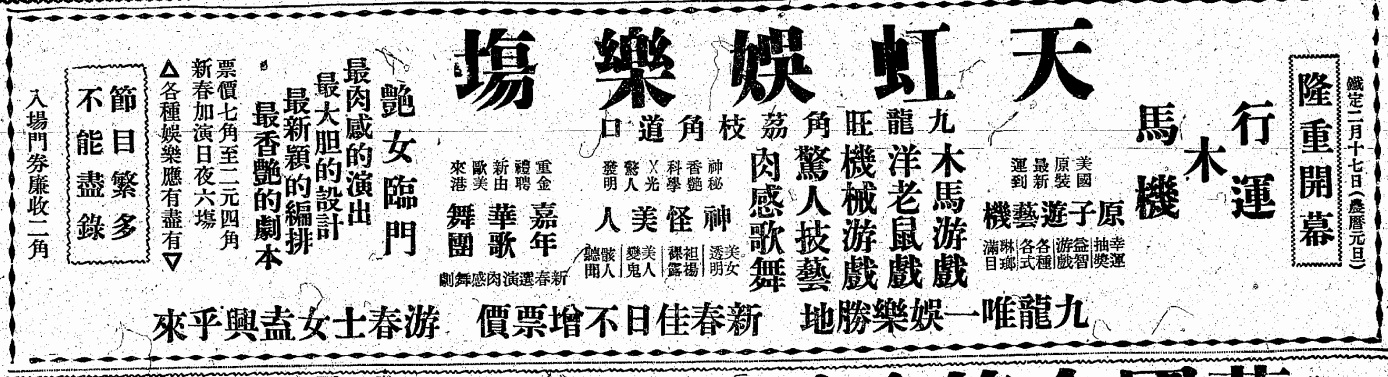 鐵定二月十七日(農曆元旦)
隆重開幕
行運
木
馬機
天虹娛樂塲
九龍旺角荔枝角道口
美國原裝最新運到
原子遊藝機
幸運抽奬
益智游戲
各種各式
琳瑯滿目
木馬游戲
洋老鼠戲
機械游戲
驚人技藝
肉感歌舞
神秘香艷科學X光驚人發明
神怪美人
美女透明
袒裼裸露
美人變鬼
駭人聽聞
重金禮聘新由歐美來港
嘉年華歌舞團
新春選演肉感舞劇
艷女臨門
最肉感的演出
最大胆的設計
最新穎的編排
最香艷的劇本
票價七角至二元四角
新春加演日夜六塲
△各種娛樂應有盡有▽
節目繁多
不能盡錄
入場門券廉收二角
九龍唯一娛樂勝地
新春佳日不增票價
游春士女盍興乎來